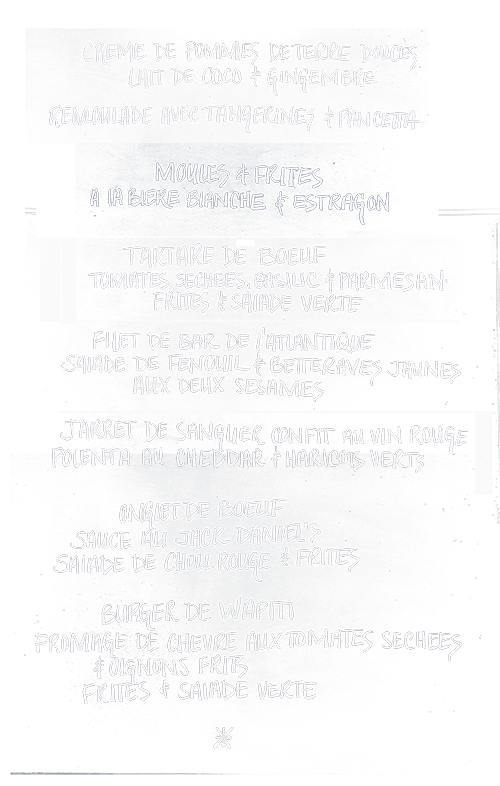 CREME DE POMMES DE TERRE DOUCES
LAIT DE COCO & GINGEMBRE
REMOULADE AVEC TANGERINES & PANCETTA
MOULES & FRITES
A LA BIERE BLANCHE & ESTRAGON
TARTARE DE BOEUF
TOMATES SECHEES, BASILIC & PARMESAN
FRITES & SALADE VERTE
FILET DE BAR DE l'ATLANTIQUE
SALADE DE FENOUIL & BETTERAVES JAUNES
AUX DEUX SESAMES
JARRET DE SANGLIER CONFIT AU VIN ROUGE
POLENTA AU CHEDDAR & HARICOTS VERTS
ONGLET DE BOEUF
SAUCE AU JACK DANIEL'S
SALADE DE CHOU ROUGE & FRITES
BURGER DE WAPITI
FROMAGE DE CHEVRE AUX TOMATES SECHEES
& OIGNONS FRITS
FRITES & SALADE VERTE